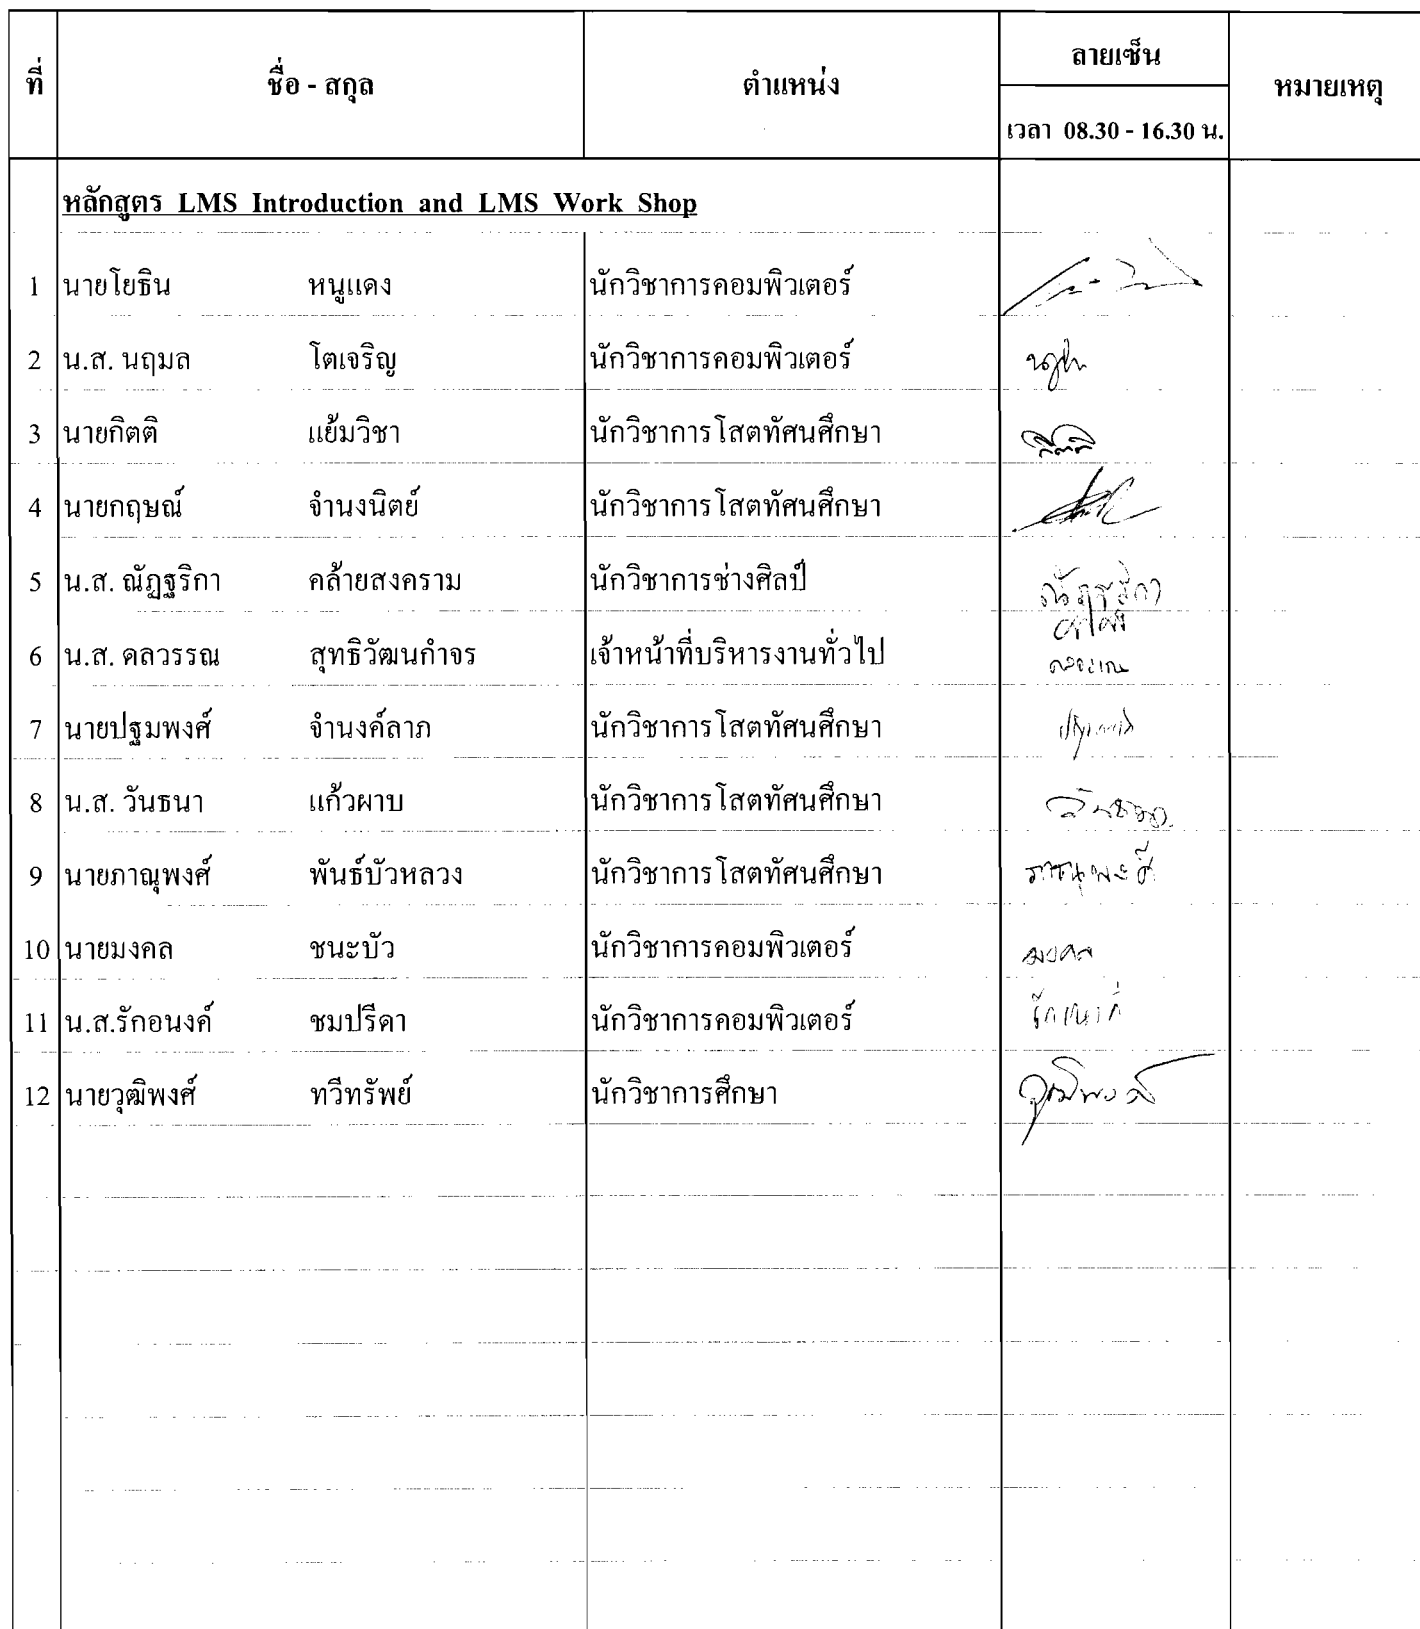 ที่ ชื่อ - สกุล ตำแหน่ง ลายเซ็น หมายเหตุ
เวลา 08.30 - 16.30 น.
หลักสูตร LMS Introduction and LMS Work Shop
1 นายโยธิน หนูแดง นักวิชาการคอมพิวเตอร์
2 น.ส. นฤมล โตเจริญ นักวิชาการคอมพิวเตอร์
3 นายกิตติ แย้มวิชา นักวิชาการโสตทัศนศึกษา
4 นายกฤษณ์ จำนงนิตย์ นักวิชาการโสตทัศนศึกษา
5 น.ส. ณัฏฐริกา คล้ายสงคราม นักวิชาการช่างศิลป์ ณัฏฐริกา
6 น.ส. ดลวรรณ สุทธิวัฒนกำจร เจ้าหน้าที่บริหารงานทั่วไป ดลวรรณ
7 นายปฐมพงศ์ จำนงค์ลาภ นักวิชาการโสตทัศนศึกษา
8 น.ส. วันธนา แก้วผาบ นักวิชาการโสตทัศนศึกษา วันธนา
9 นายภาณุพงศ์ พันธ์บัวหลวง นักวิชาการโสตทัศนศึกษา ภาณุพงศ์
10 นายมงคล ชนะบัว นักวิชาการคอมพิวเตอร์ มงคล
11 น.ส.รักอนงค์ ชมปรีดา นักวิชาการคอมพิวเตอร์
12 นายวุฒิพงศ์ ทวีทรัพย์ นักวิชาการศึกษา วุฒิพงศ์